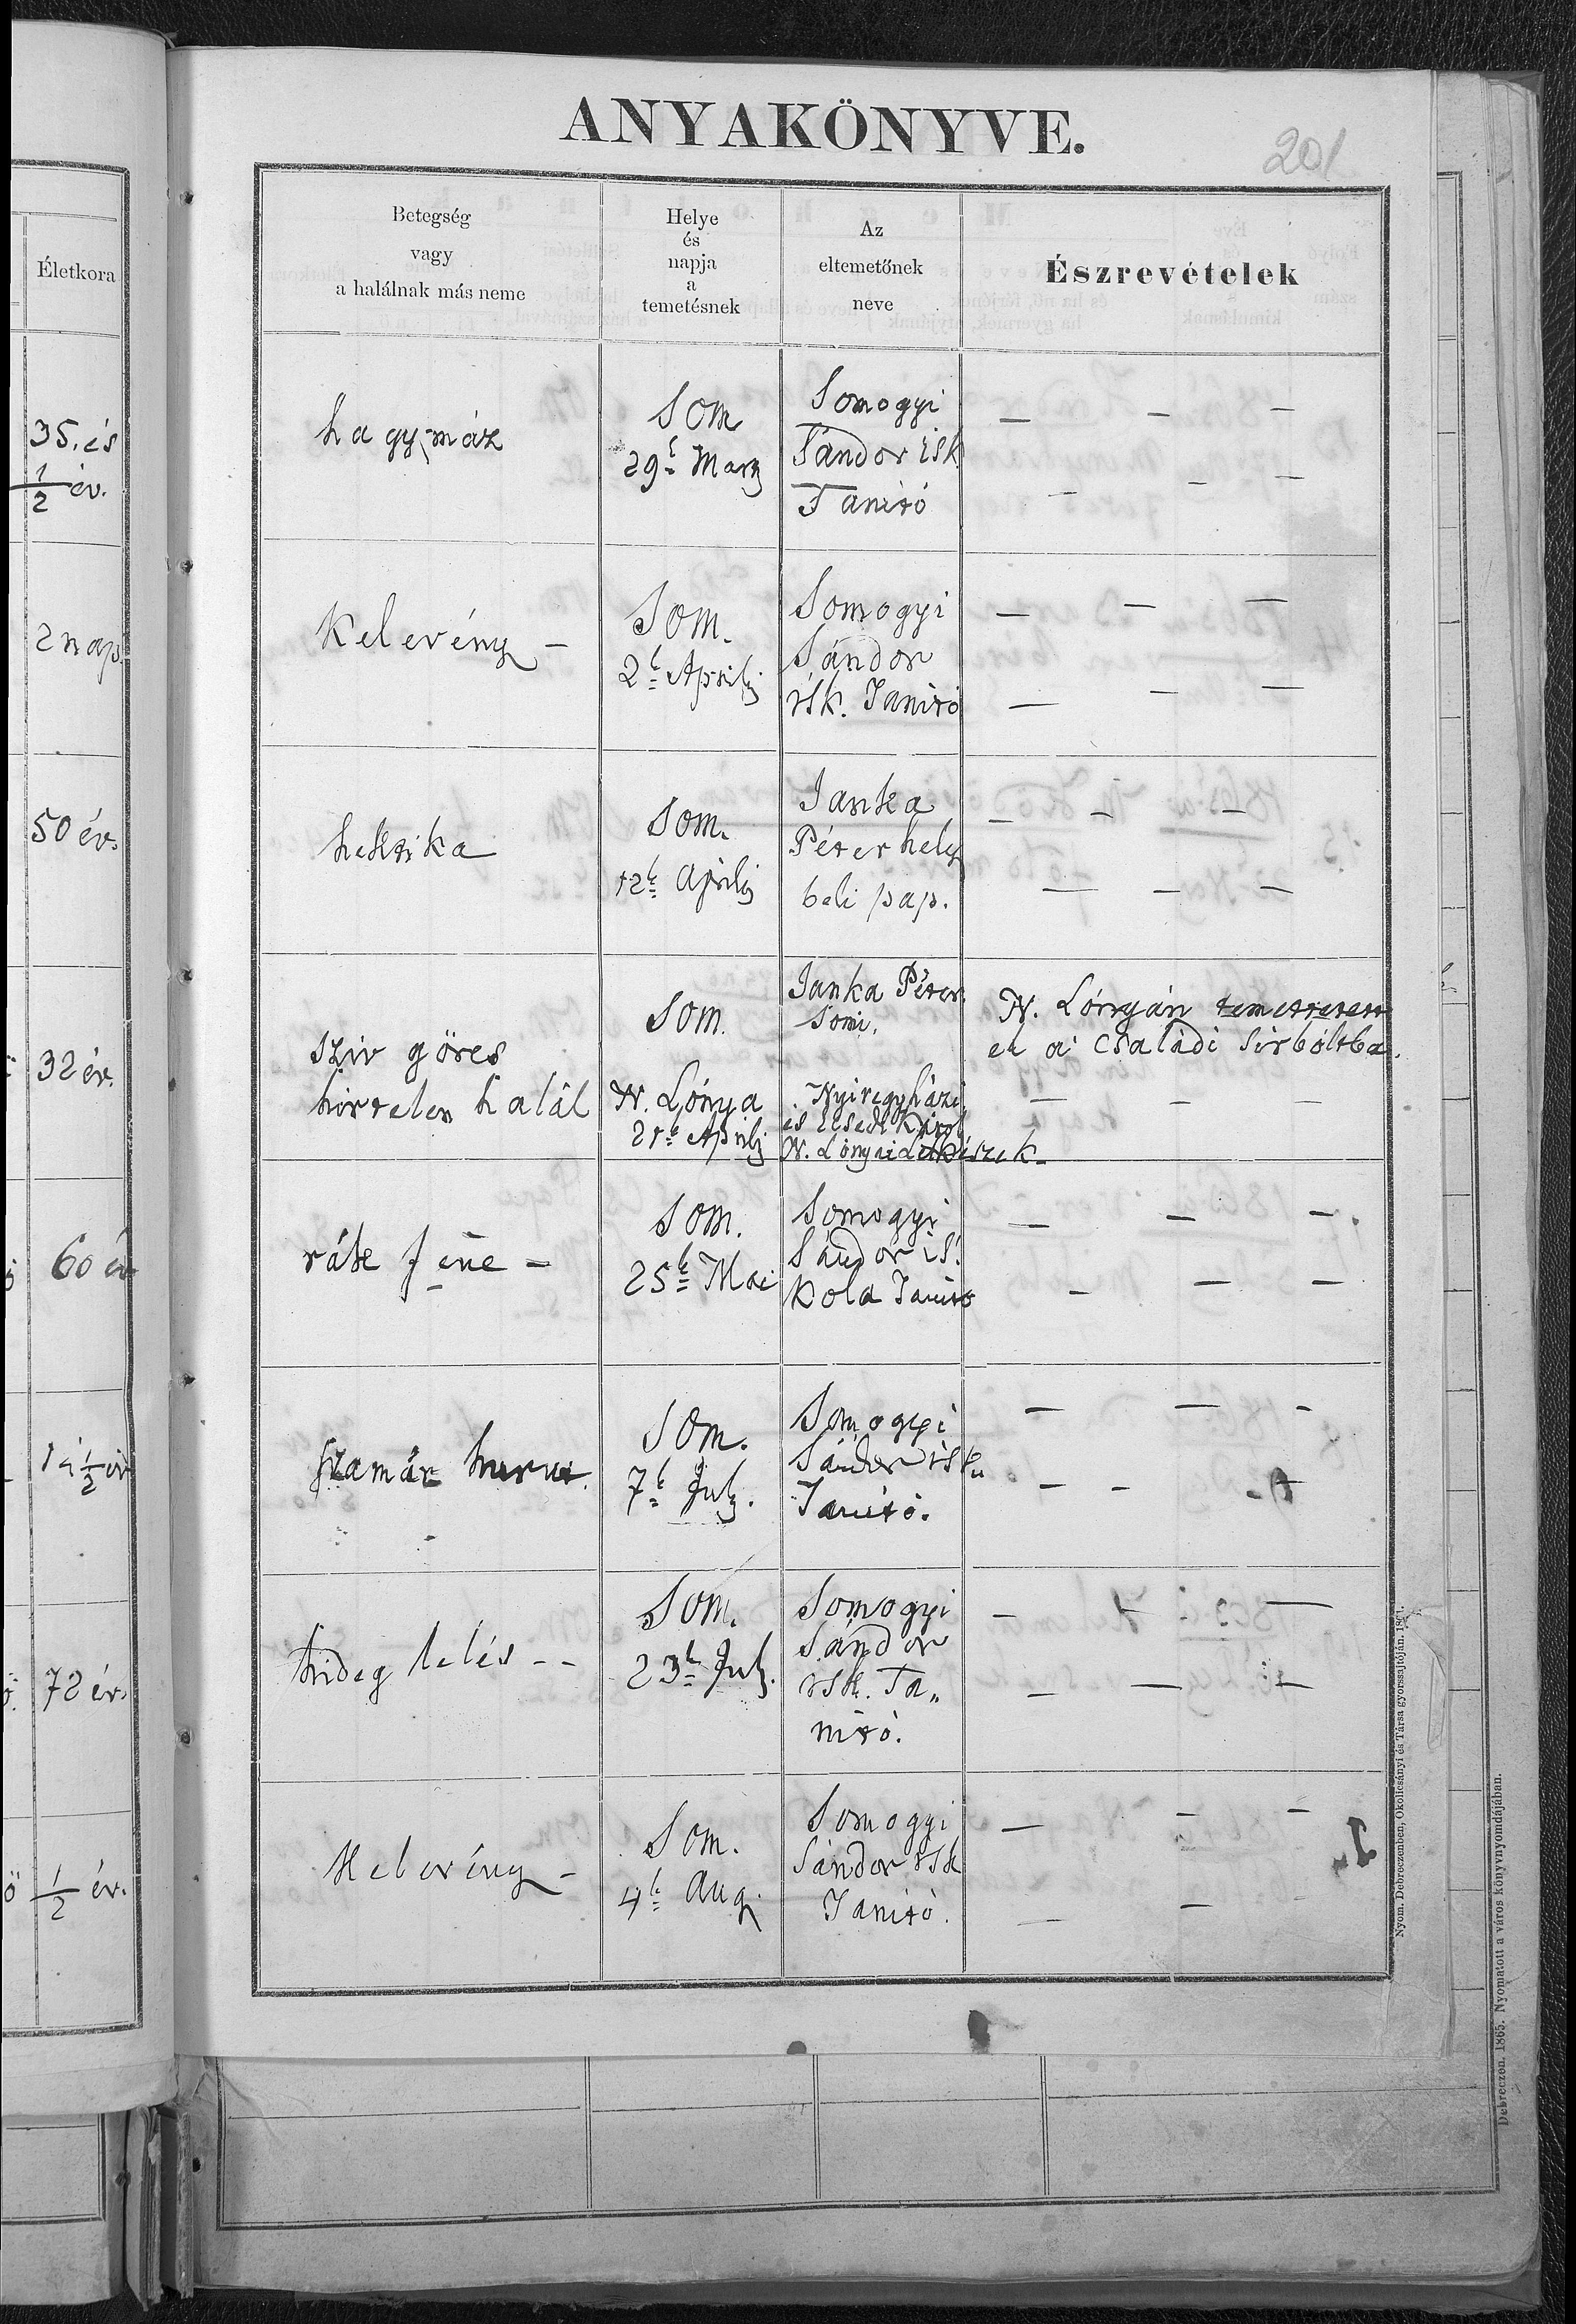 ANYAKÖNYVE.
201
Életkora
Betegség
vagy
a halálnak más neme
Helye
és
napja
a
temetésnek
Az
eltemetőnek
neve
Észrevételek
35. és
1/2 év.
hagymáz
Som
29k Marz
Somogyi
Sándor isk
Tanitó
— — —
— — —
2 nap.
Kelevény —
Som.
2k Aprily
Somogyi
Sándor
isk. Tanitó
— — —
— — —
50 év.
hektika
Som.
12k Aprily
Janka
Péter hely
beli pap.
— — —
— — —
32 év.
sziv görcs
hirtelen halál
Som.
N. Lónya
21k Aprily
Janka Péter
Somi.
Nyiregyházi
és Elsedi Károl
N. Lónyai Lelkészek.
N. Lónyán temettetett
el a' Családi Sirboltba.
— — —
60 év
ráke fene —
Som.
25k Mai
Somogyi
Sándor is.
kola Tanitó
— — —
— — —
1 1/2 év
szamár hurut.
Som.
7k July.
Somogyi
Sándor isk.
Tanitó.
— — —
— —
72 év.
hideg lelés - -
Som.
23k July.
Somogyi
Sándor
isk. Ta„
nitó.
— — —
— — —
1/2 év.
Kelevény —
Som.
4k Aug.
Somogyi
Sándor isk
Tanitó.
— — —
— —
Nyom. Debreczenben, Okolicsányi és Társa gyorssajtóján. 1861.
Debreczen. 1865. Nyomatott a város könyvnyomdájában.